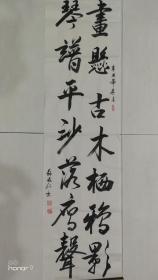 畫懸古木栖鴉影
琴譜平沙落雁聲
honor